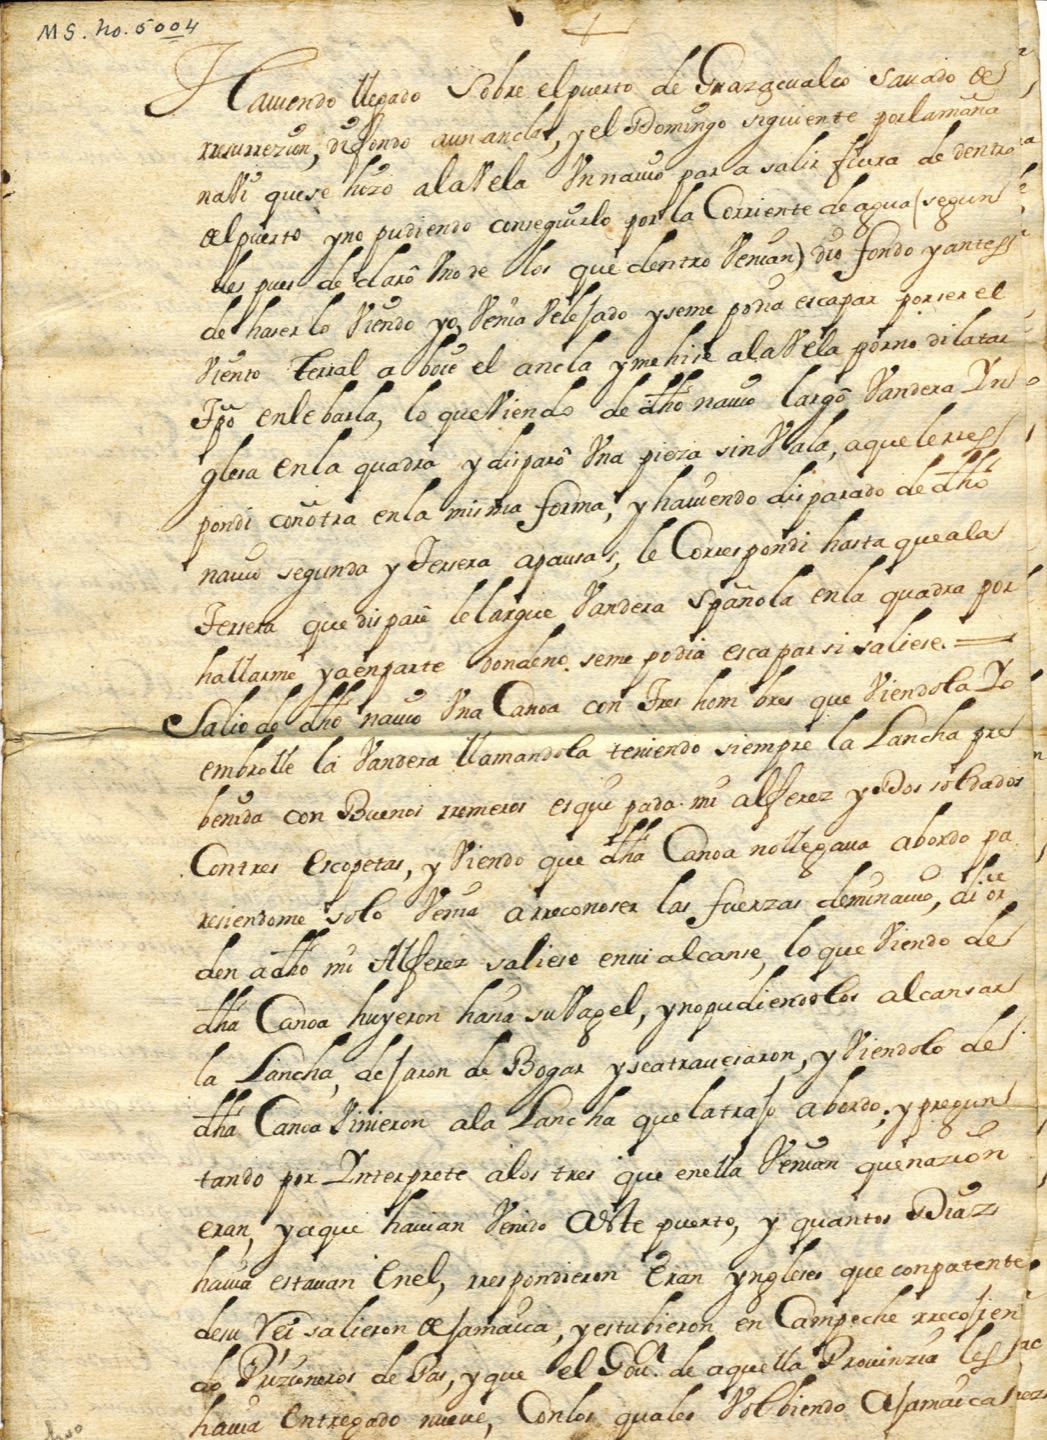 MS. no. 5004
Hauiendo llegado Sobre el puerto de Guazacualco sauado de
rresurrezion, di fondo a un ancla, y el Domingo siguiente por la mañana
na Vi que se hizo a la Vela Vn nauio para salir fuera de dentro
del puerto y no pudiendo conseguirlo por la Corriente de agua (segun
des pues de claró Vno de los que dentro Venian) dio fondo y antes
de haserlo Viendo yo Venia Velejado y se me podia escapar por ser el
Viento terral a boié el ancla y me hise a la Vela por no dilatar
Tpō en lebarla, lo que Viendo de dhō nauio largó Vandera Yn
glesa en la quadra y disparó Vna pieza sin Vala, a que le rres
pondi con otra en la misma forma, y hauiendo disparado de dhō
nauio segunda y Tersera a pausas, le Correspondi hasta que a la
Tersera que disparé le largue Vandera Española en la quadra por
hallarme ya en parte donde no se me podia escapar si saliese. =
Salio de dhō nauio Vna Canoa con Tres hom bres que Viendola Yo
embrollé la Vandera llamandola teniendo siempre la Lancha pre
benida con Buenos rremeros esquipada mi alferez y Dos soldados
Con tres Escopetas, y Viendo que dhā Canoa no llegaua abordo pa
resiendome solo Venia a rreconoser las fuerzas de mi nauio, di or
den a dhō mi Alferez saliese en su alcanse, lo que Viendo de
dhā Canoa huyeron hasia su Vagel, y no pudiendolos alcansar
la Lancha, dejaron de Bogar y se atrauesaron, y Viendolo de
dhā Canoa Vinieron a la Lancha que la trajo abordo; y pregun
tando por Ynterprete a los tres que en ella Venian que nazion
eran, y a que hauian Venido a este puerto, y quantos Diaz
hauia estauan En el, rrespondieron Eran yngleses que con patente
de su Rei salieron de Jamaica, y estubieron en Campeche rrecojien
do Prizioneros de Pas, y que el Gour. de aquella Prouinzia les
hauia Entregado nueue, Con los quales Volbiendo a Jamaica